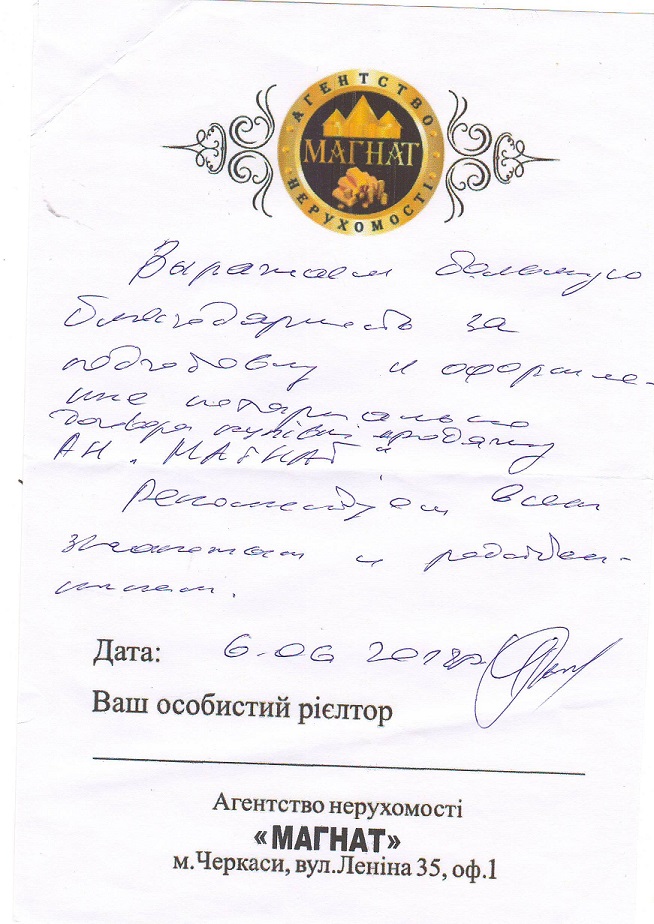 АГЕНТСТВО
МАГНАТ
НЕРУХОМОСТІ
Выражаем большую
благодарность за
подготовку и оформле-
ние нотариально
договора купівлі продажу
АН "МАГНАТ"
Рекомендуем всем
знакомым и родствен-
никам.
Дата: 6.06
Ваш особистий рієлтор
Агентство нерухомості
«МАГНАТ»
м.Черкаси, вул.Леніна 35, оф.1